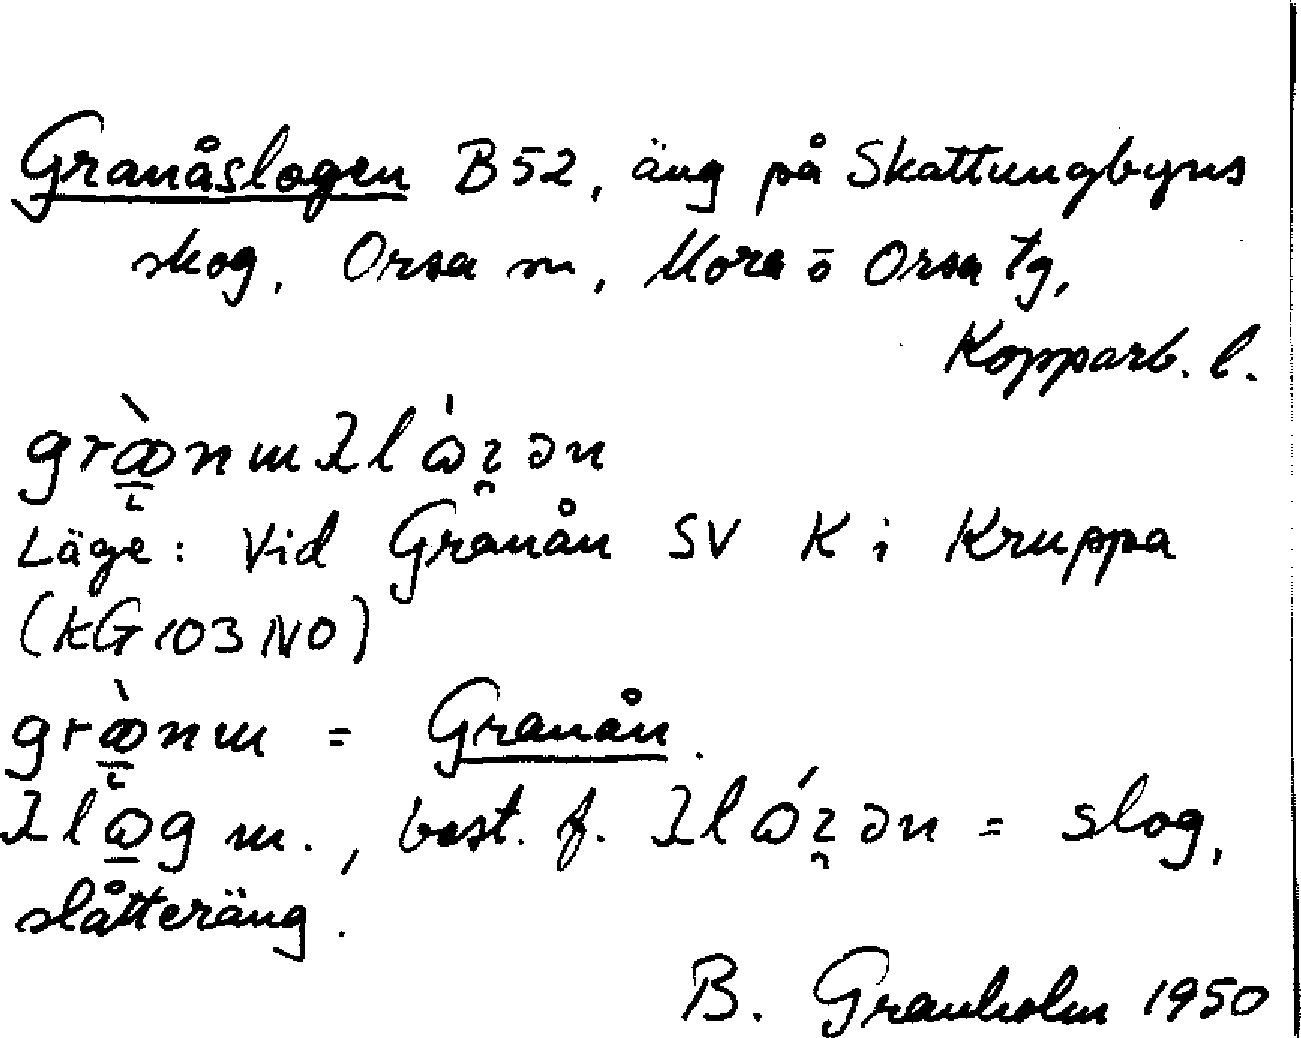 Granåslogen B52, äng på Skattungbyns
skog, Orsa sn, Mora o Orsa tg,
Kopparb. l.
Läge: Vid Granån SV K i Kruppa
(KG 103 NO)
= Granån.
m., best. f. = slog,
slåtteräng.
B. Granholm 1950